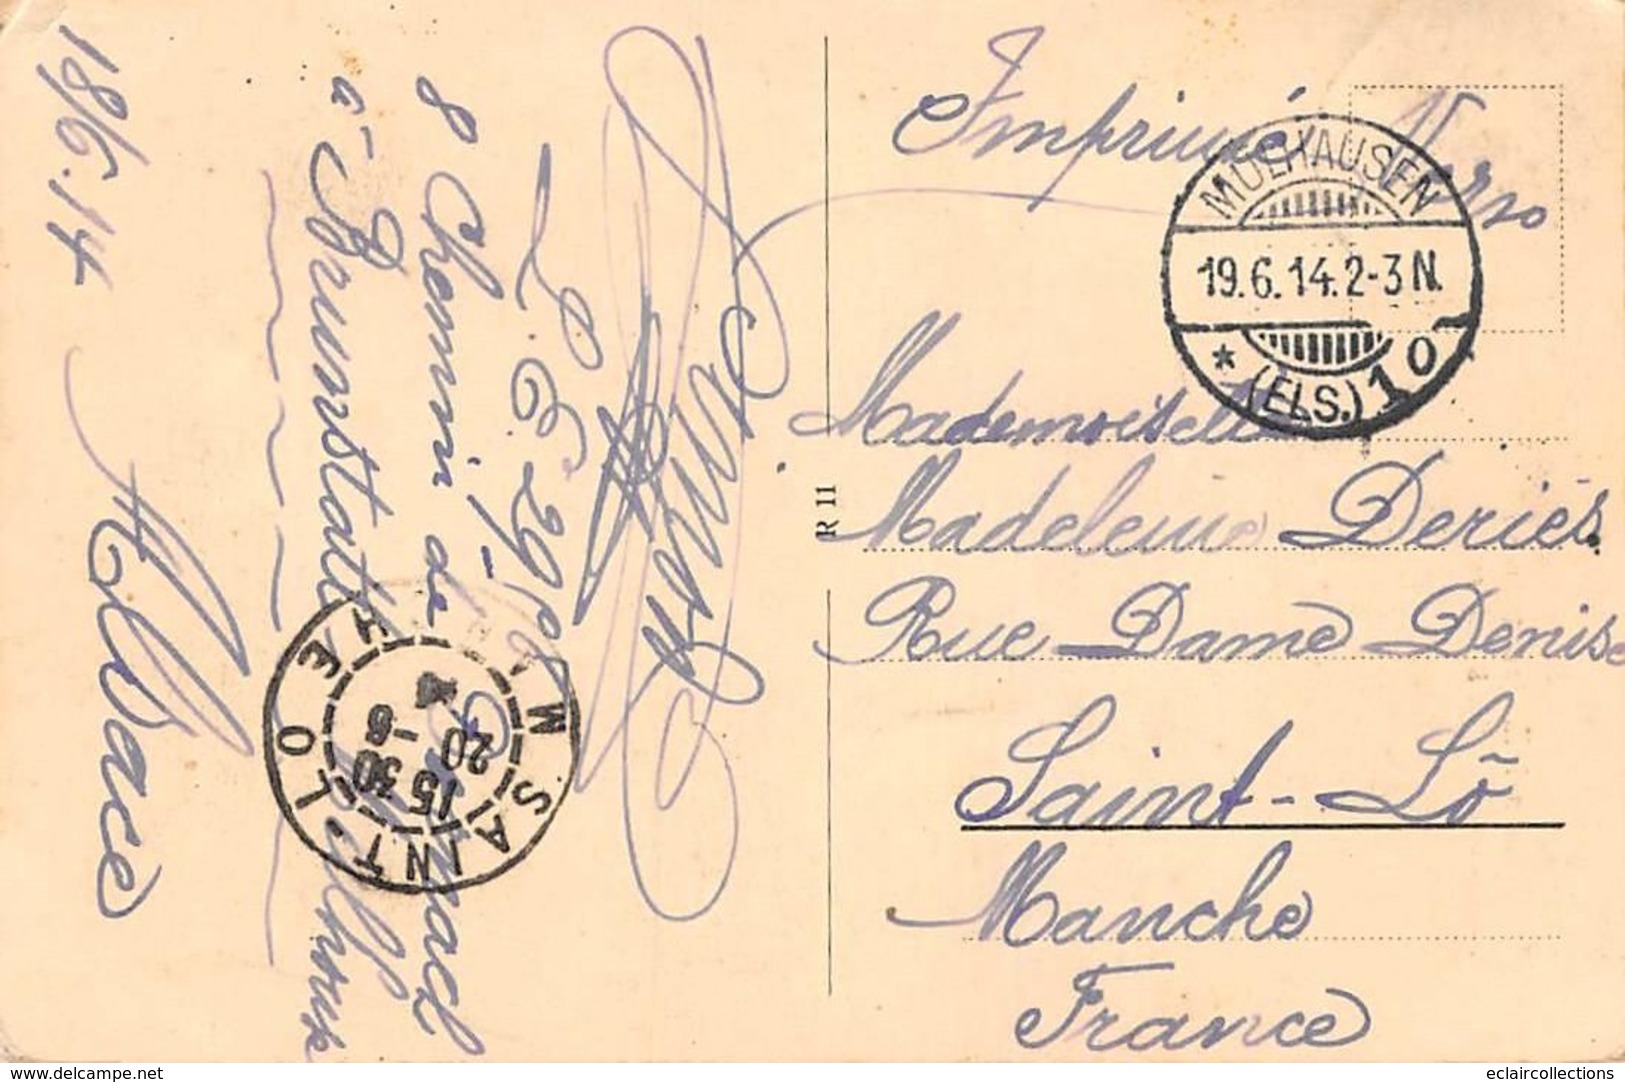 Imprimé Verso
MÜLHAUSEN
19.6.14.2-3N.
* (ELS.) 10
Mademoiselle
Madeleine Deriés.
Rue Dame Denise
Saint-Lô
Manche
France
R 11
L. E. 29
8 Chemin de
à Brunstatt
18/6.14 Alsace
SAINT-LO
MANCHE
15 30
20 -6
14
delcampe.net
eclaircollections